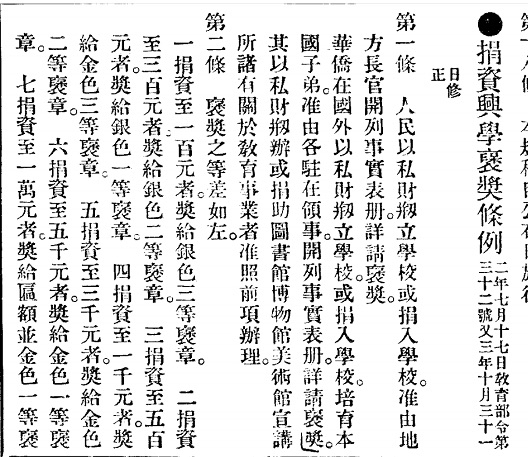 ●捐資興學褒獎條例
二年七月十七日敎育部令第
三十二號又三年十月三十一
日修
正
第一條 人民以私財剏立學校或捐入學校。准由地
方長官開列事實表册。詳請褒獎。
華僑在國外以私財剏立學校。或捐入學校。培育本
國子弟。准由各駐在領事開列事實表册。詳請褒獎。
其以私財剏辦或捐助圖書館博物館美術館宣講
所諸有關於敎育事業者。准照前項辦理。
第二條 褒獎之等差如左。
一捐資至一百元者。獎給銀色三等褒章。 二捐資
至三百元者。獎給銀色二等褒章。 三捐資至五百
元者。獎給銀色一等褒章。 四捐資至一千元者。獎
給金色三等褒章。 五捐資至三千元者。獎給金色
二等褒章。 六捐資至五千元者。獎給金色一等褒
章。 七捐資至一萬元者。獎給匾額並金色一等褒